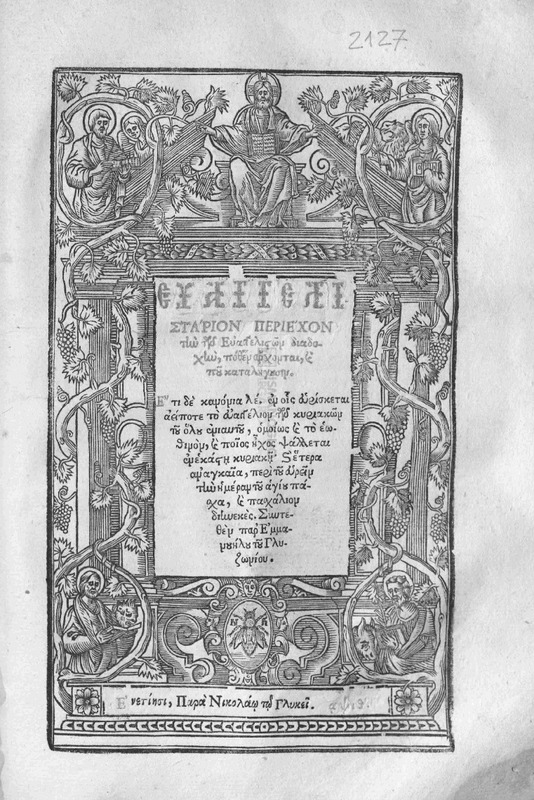 2127
ΕΥΑΓΓΕΛΙ
ΣΤΑΡΙΟΝ ΠΕΡΙΕΧΟΝ
τὴν τῶν Εὐαγγελιςῶν διαδο-
χὴν, πόθεν ἄρχονται, καὶ
ποῦ καταλήγουσιν.
Ἔτι δὲ κανόνια λε. ἐν οἷς εὑρίσκεται
ἀείποτε τὸ εὐαγγέλιον τῶν κυριακῶν
τοῦ ὅλου ἐνιαυτοῦ, ὁμοίως καὶ τὸ ἑω-
θινὸν, καὶ ποῖος ἦχος ψάλλεται
ἐν ἑκάςῃ κυριακῇ. Καὶ ἕτερα
ἀναγκαῖα, περὶ τοῦ εὑρεῖν
τὴν ἡμέραν τοῦ ἁγίου πά-
σχα, καὶ πασχάλιον
διηνεκές. Συντε-
θὲν παρ' Ἐμμα-
νουήλου τοῦ Γλυ-
ζωνίου.
Ν Γ
Ἐνετίῃσι, Παρὰ Νικολάῳ τῷ Γλυκεῖ.